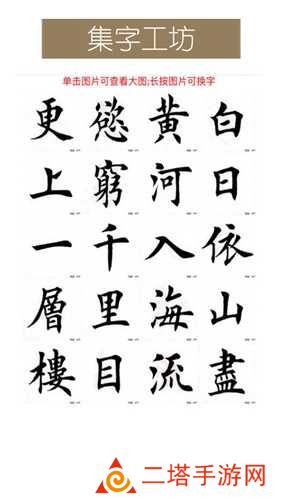 集字工坊
单击图片可查看大图;长按图片可换字
白日依山盡
黄河入海流
慾窮千里目
更上一層樓
二塔手游网